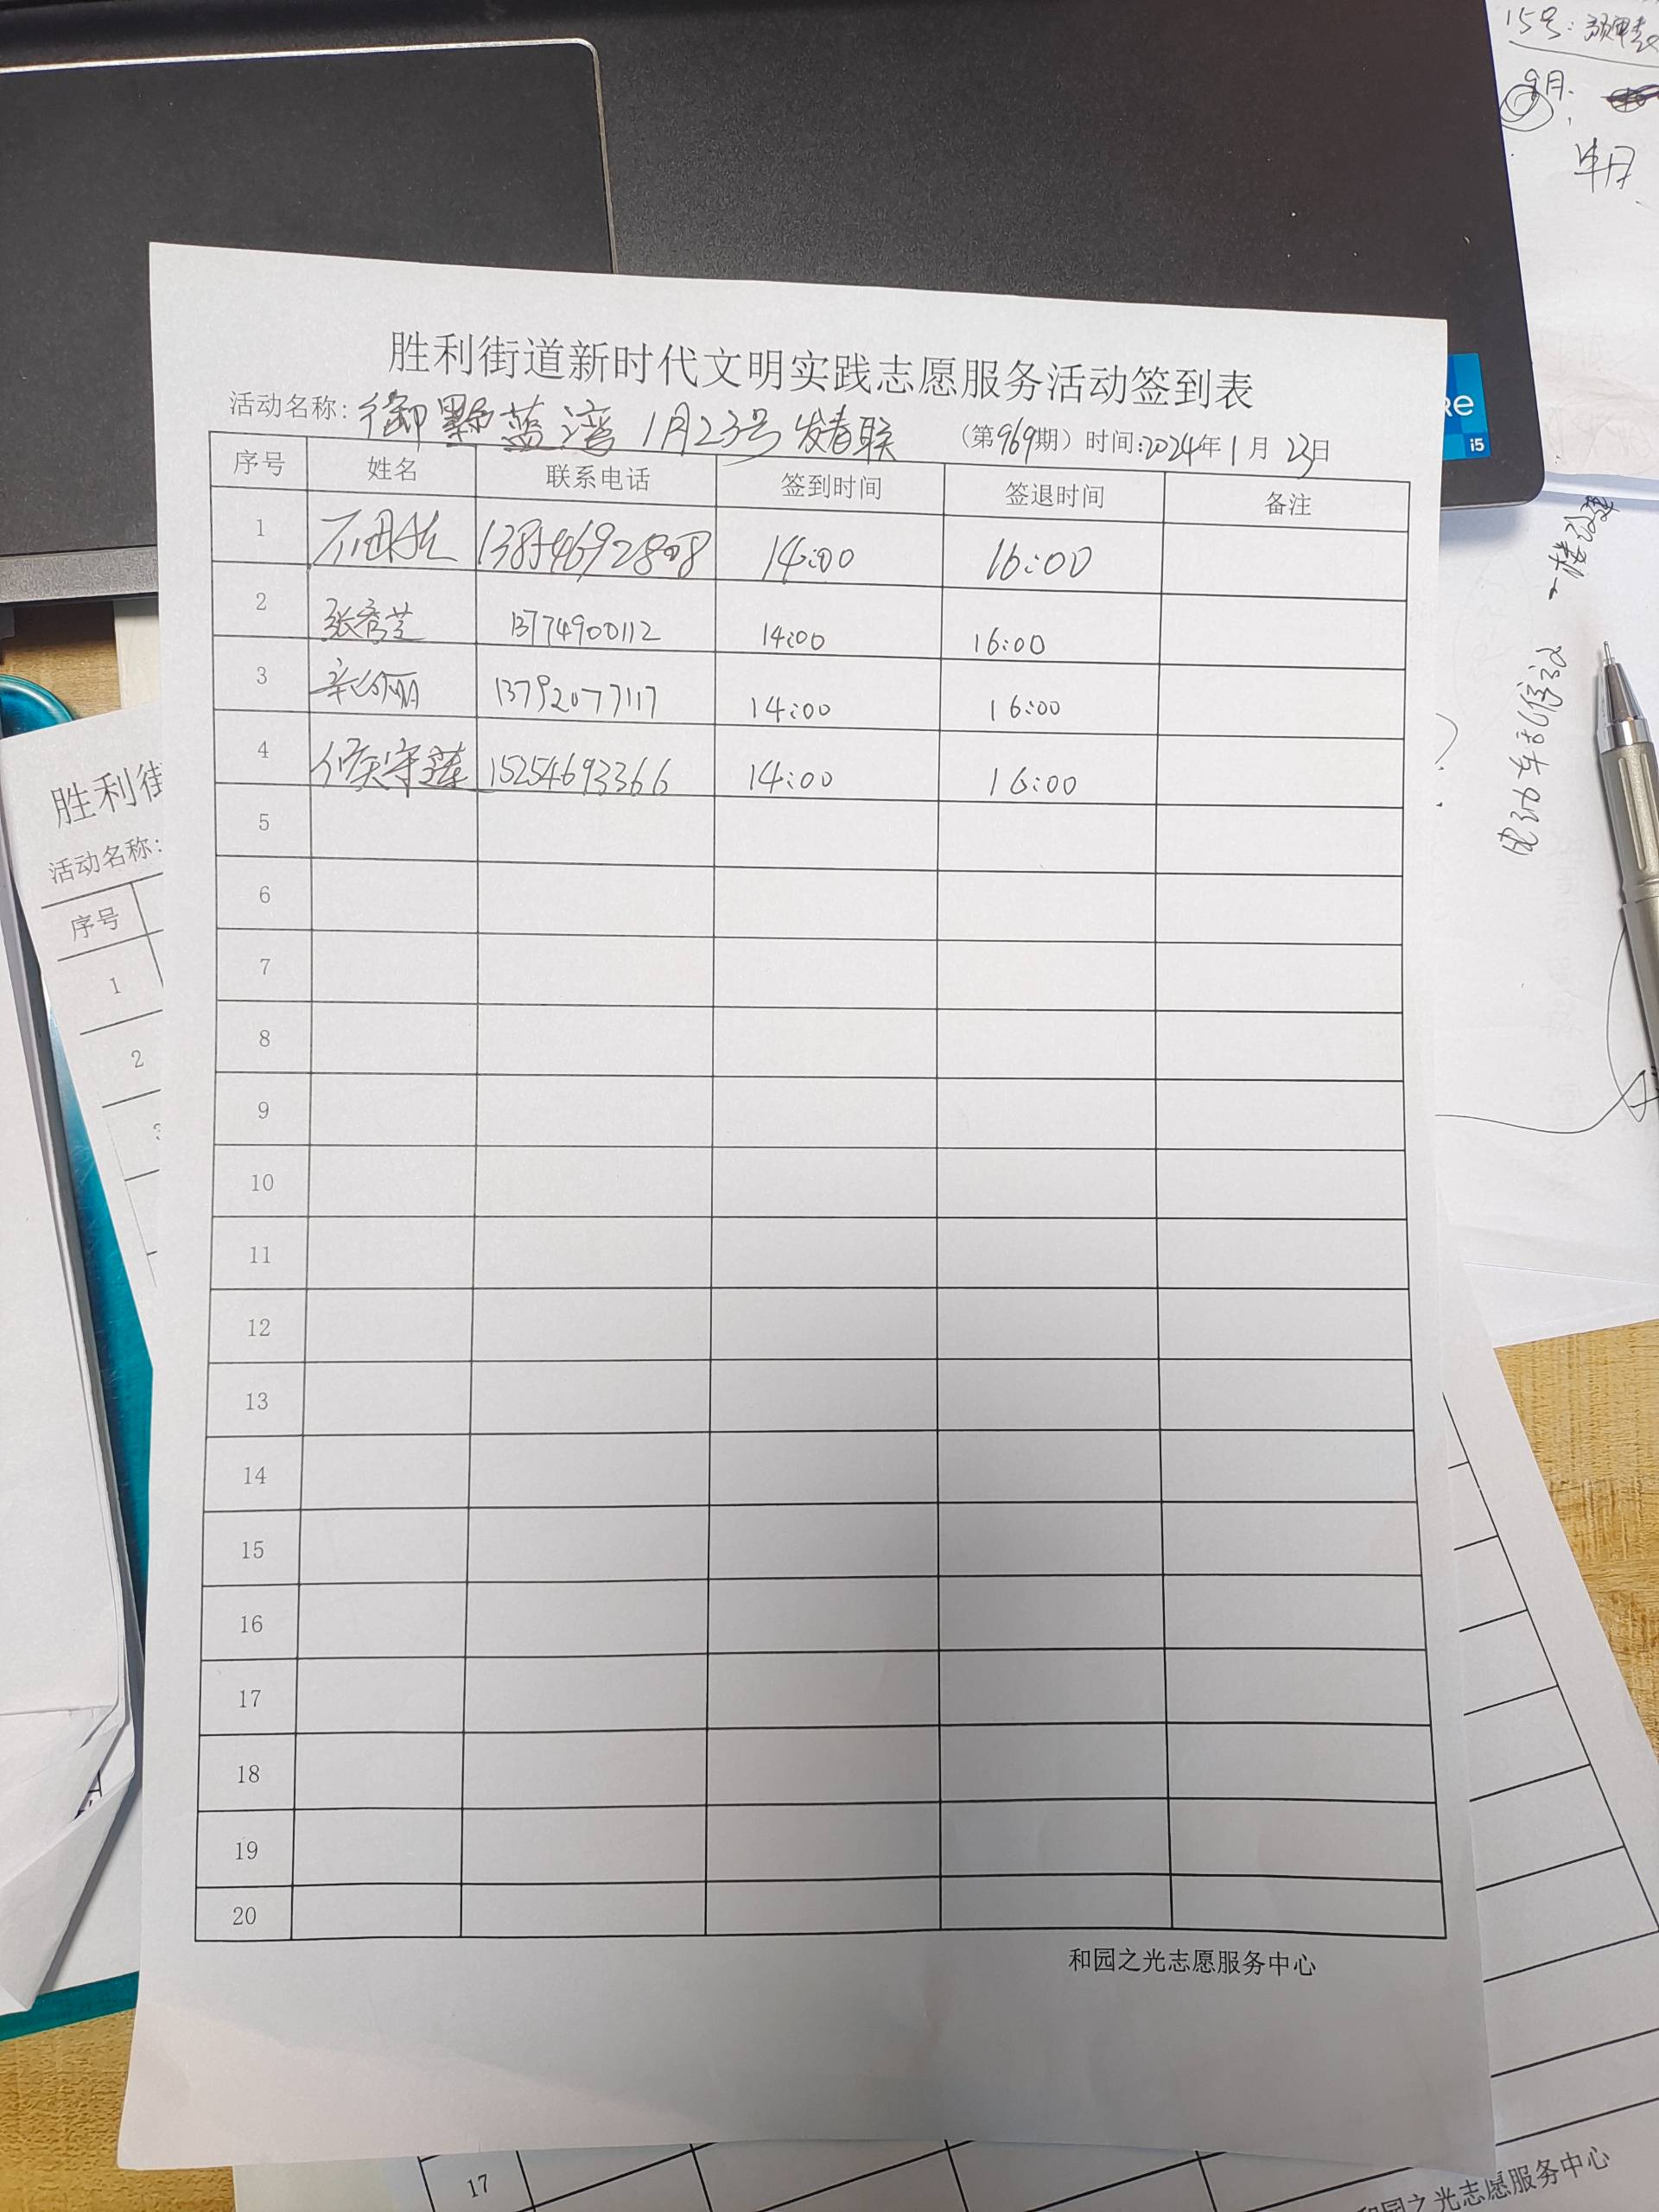 15号:
9月.
RE
i5
胜利街道新时代文明实践志愿服务活动签到表
活动名称: 御墅蓝湾 1月23号发春联 (第969期) 时间:2024年1月23日
序号 姓名 联系电话 签到时间 签退时间 备注
1 13854692808 14:00 16:00
2 张秀芝 13774900112 14:00 16:00
3 13792077117 14:00 16:00
4 侯守莲 15254693366 14:00 16:00
5
6
7
8
9
10
11
12
13
14
15
16
17
18
19
20
和园之光志愿服务中心
胜利街
活动名称:
序号
1
2
3
一楼
电动车
17
和园之光志愿服务中心